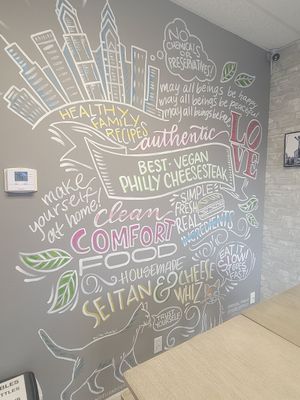 NO
CHEMICALS
OR
PRESERVATIVES
may all beings be happy
may all beings be peaceful
may all beings be
HEALTHY
FAMILY
RECIPES
authentic
LOVE
BEST · VEGAN
PHILLY CHEESESTEAK
make
yourself
at home!
Clean
COMFORT
FOOD
SIMPLE
FRESH
REAL
INGREDIENTS
HOUSEMADE
SEITAN & CHEESE
WHIZ
EAT IT
SLOW!
TREAT
YOURSELF